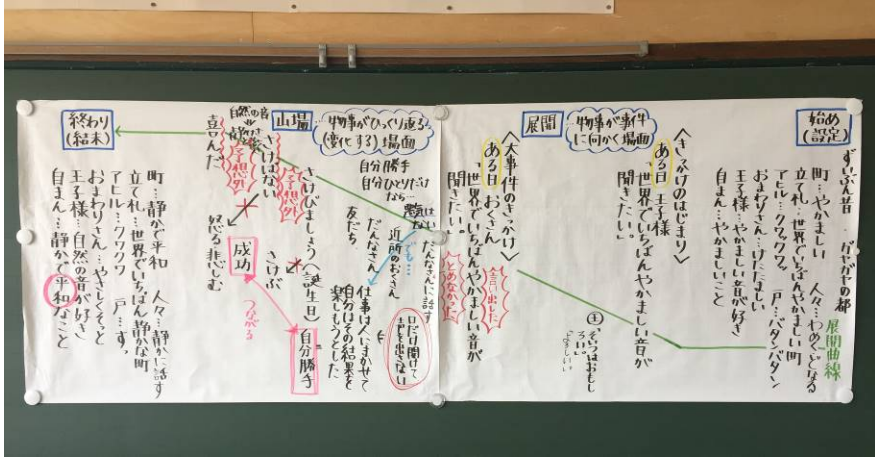 始め
(設定)
ずいぶん昔 ガヤガヤの都
町…やかましい 人々…わめく、どなる
立て札…世界でいちばんやかましい町
アヒル…クワックワッ 戸…バタンバタン
おまわりさん…けたたましい
王子様…やかましい音が好き
自まん…やかましいこと
展開曲線
展開
物事が事件
に向かく場面
〈きっかけのはじまり〉
ある日 王子様
「世界でいちばんやかましい音が
聞きたい。」
王「そいつはおもし
ろい。」
〈大事件のきっかけ〉
ある日 おくさん
言い出した
「世界でいちばんやかましい音が
聞きたい。」
とめなかった
山場
物事がひっくり返る
(変化する)場面
自分勝手
自分ひとりだけ
なら…
だんなさんに話す
でも…
近所のおくさん
だんなさん
友だち
口だけ開けて
声を出さない
仕事は人にまかせて
自分はその結果を
楽しもうとした
自分勝手
つながる
さけびましょう(誕生日)
さけぶ
成功
予想外
さけばない
予想外
怒る 悲しむ
自然の音
喜んだ
終わり
(結末)
町…静かで平和 人々…静かに話す
立て札…世界でいちばん静かな町
アヒル…クワックワッ 戸…すっ
おまわりさん…やさしくそっと
王子様…自然の音が好き
自まん…静かで平和なこと